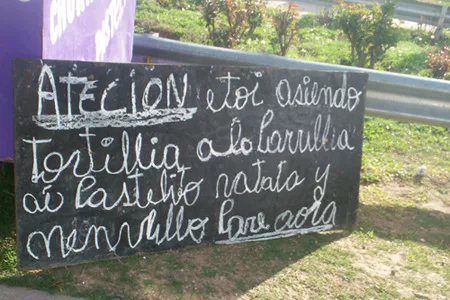 ATECION etoi asiendo
tortillia a lo parrillia
ai pastelio natata y
menvrillo pare aora